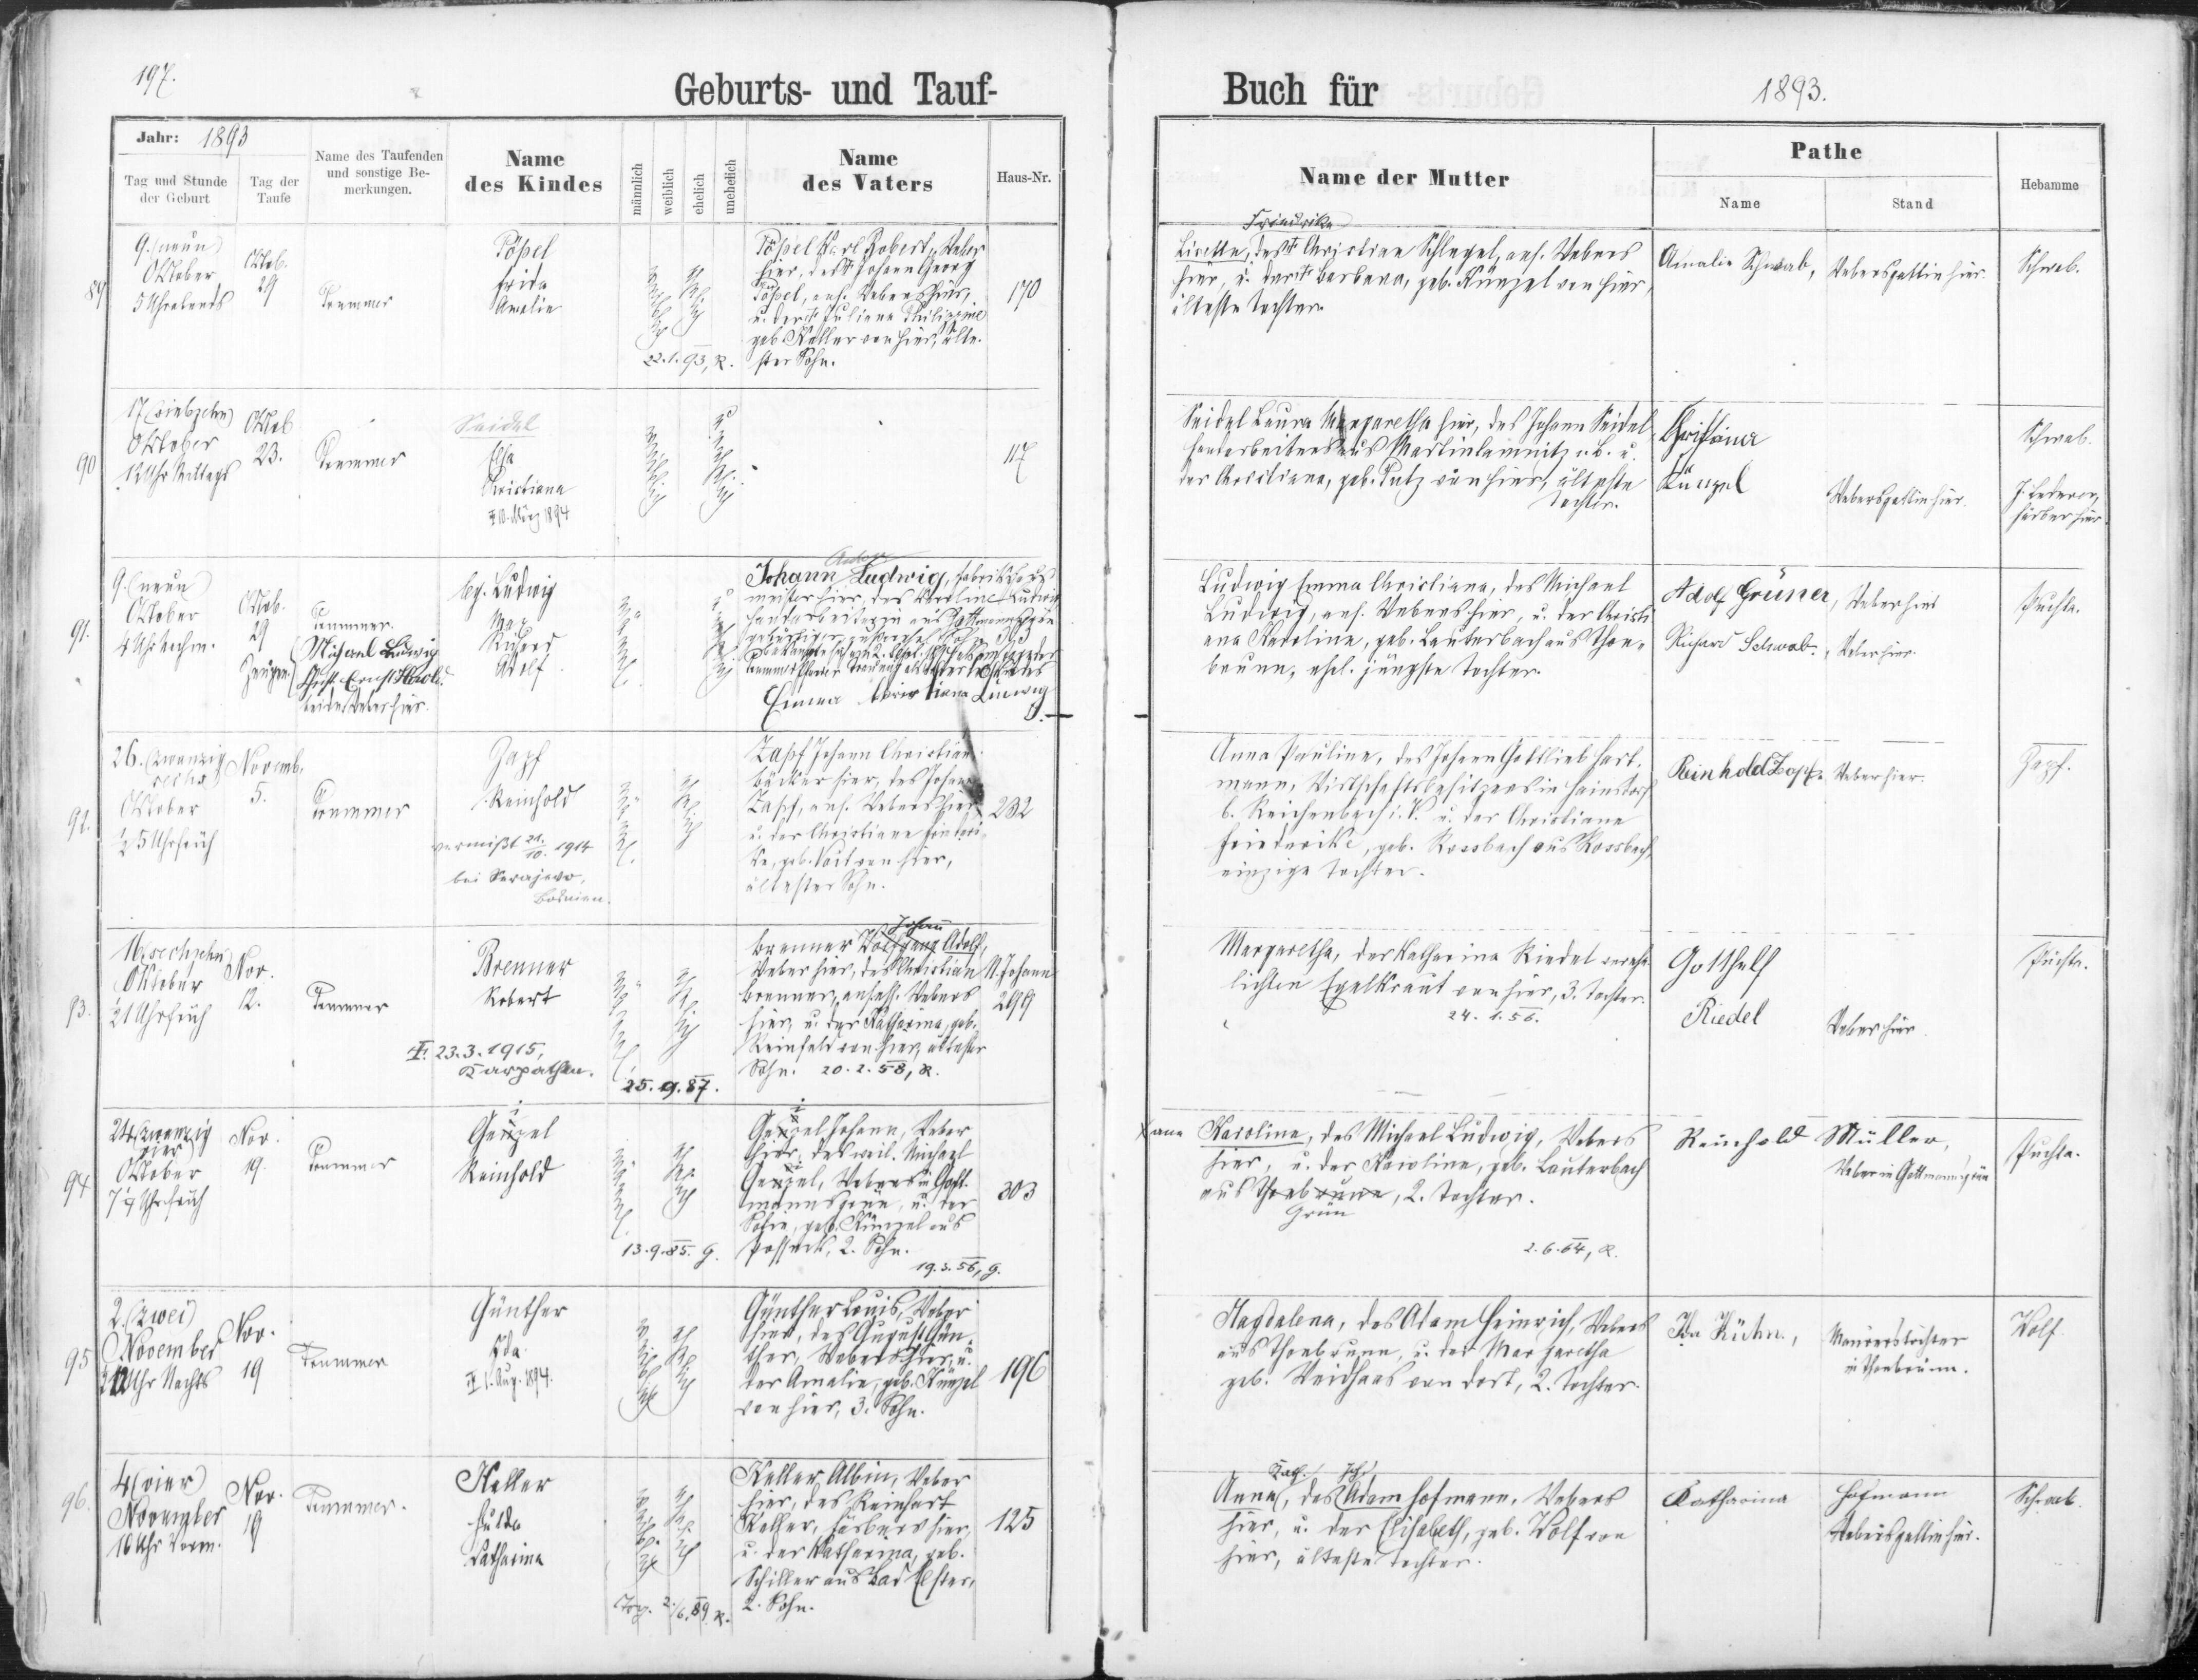 197.
Geburts- und Tauf-
Buch für
1893.
Jahr: 1893
Tag und Stunde
der Geburt
Tag der
Taufe
Name des Taufenden
und sonstige Be-
merkungen.
Name
des Kindes
männlich
weiblich
ehelich
unehelich
Name
des Vaters
Haus-Nr.
Name der Mutter
Pathe
Name
Stand
Hebamme
89
9. (neun)
Oktober
5 Uhr abends
Oktob.
29
Trummer
Pößel
Frida
Amalie
weiblich
ehelich
22.1.93, R.
Pößel Karl Robert, Weber
hier, des † Johann Georg
Pößel, ans. Webers hier,
u. der † Juliana Philippine
geb. Keller von hier, älte-
ster Sohn.
170
Friedrike
Lisette, des † Christian Schlegel, ans. Webers
hier, u. der † Barbara, geb. Künzel von hier,
älteste Tochter.
Amalie Schwab,
Webersgattin hier.
Schwab.
90
17 (siebzehn)
Oktober
12 Uhr Mittags
Oktob
23.
Trummer
Seidel
Elsa
Christiana
10. März 1894
weiblich
unehelich
117
Seidel Laura Margaretha hier, des Johann Seidel,
Handarbeiters aus Martinlamitz u. B. u.
der Christiana, geb. Putz von hier, älteste
Tochter.
Christiana
Künzel
Webersgattin hier.
Schwab.
91.
9. (neun)
Oktober
4 Uhr nachm.
Oktob.
29
Trummer.
Zeugen:
Michael Ludwig
beide Weber hier.
Ludwig
Max
Richard
Adolf
männl.
Johann Ludwig,
Emma Christiana Ludwig
Ludwig Emma Christiana, des Michael
Ludwig, ans. Webers hier, u. der Christi
ana Karoline, geb. Lauterbach aus Thon-
brunn, ehel. jüngste Tochter.
Adolf Grüner, Weber hier
Richard Schwab, Weber hier.
Puchta.
26. (zwanzig
sechs)
Oktober
½ 5 Uhr früh
Novemb.
5.
Trummer
Zapf
Reinhold
vermißt 21./10. 1914
bei Serajevo,
Bosnien.
männl.
ehelich
Zapf Johann Christian
Bäcker hier, des Johann
Zapf, ans. Webers hier
u. der Christiane Friederi-
ke, geb. Voit von hier,
ältester Sohn.
232
Anna Pauline, des Johann Gottlieb Hart-
mann, Wirtschaftsbesitzers in Hainsdorf
b. Reichenbach i. V. u. der Christiane
Friederike, geb. Rossbach aus Rossbach,
einzige Tochter.
Reinhold Zapf, Weber hier.
Zapf.
93.
16 (sechzehn)
Oktober
½1 Uhr früh
Nov.
12.
Trummer
Brenner
Robert
23.3.1915,
Karpathen.
männl.
ehelich
25.9.87.
Johann
Brenner Wolfgang Adolf,
Weber hier, des Christian
Brenner, ansäss. Webers
hier, u. der Katharina, geb.
Reinfeld von hier, ältester
Sohn. 20.2.58, R.
N. Johann
299
Margaretha, der Katharina Riedel vereh-
lichten Egelkraut von hier, 3. Tochter.
24.1.56.
Gotthelf
Riedel
Weber hier.
Puchta.
94
24 (zwanzig
vier)
Oktober
Nov.
19.
Trummer
Geipel
Reinhold
männl.
ehelich
13.9.85. G.
Geipel Johann, Weber
hier, des weil. Michael
Geipel, Webers in Gott-
mannsgrün, u. der
Sofie, geb. Künzel aus
Posseck, 2. Sohn.
19.3.56, G.
303
ane Karoline, des Michael Ludwig, Webers
hier, u. der Karoline, geb. Lauterbach
aus Thonbrunn, 2. Tochter.
Grün
2.6.64, R.
Reinhold Müller,
Weber in Gottmannsgrün
Puchta.
95
2. (zwei)
November
12 Uhr Nachts
Nov.
19
Trummer
Günther
Ida
1. Aug. 1894.
weiblich
ehelich
Günther Louis, Weber
hier, des August Gün-
ther, Webers hier, u.
der Amalie, geb. Künzel
von hier, 3. Sohn.
196
Magdalena, des Adam Heinrich, Webers
aus Thonbrunn, u. der Margaretha
geb. Weidhaas von dort, 2. Tochter.
Ida Kühn,
Maurerstochter
in Thonbrunn.
Wolf.
96.
4 (vier)
November
10 Uhr Vorm.
Nov.
19
Trummer.
Keller
Hulda
Katharina
weiblich
ehelich
2./6.89 R.
Keller Albin, Weber
hier, des Reinhart
Keller, Färbers hier,
u. der Katharina, geb.
Schiller aus Bad Elster,
2. Sohn.
125
Kath. Joh.
Anna, des Adam Hofmann, Webers
hier, u. der Elisabeth, geb. Wolf von
hier, älteste Tochter.
Katharina
Hofmann
Webersgattin hier.
Schwab.